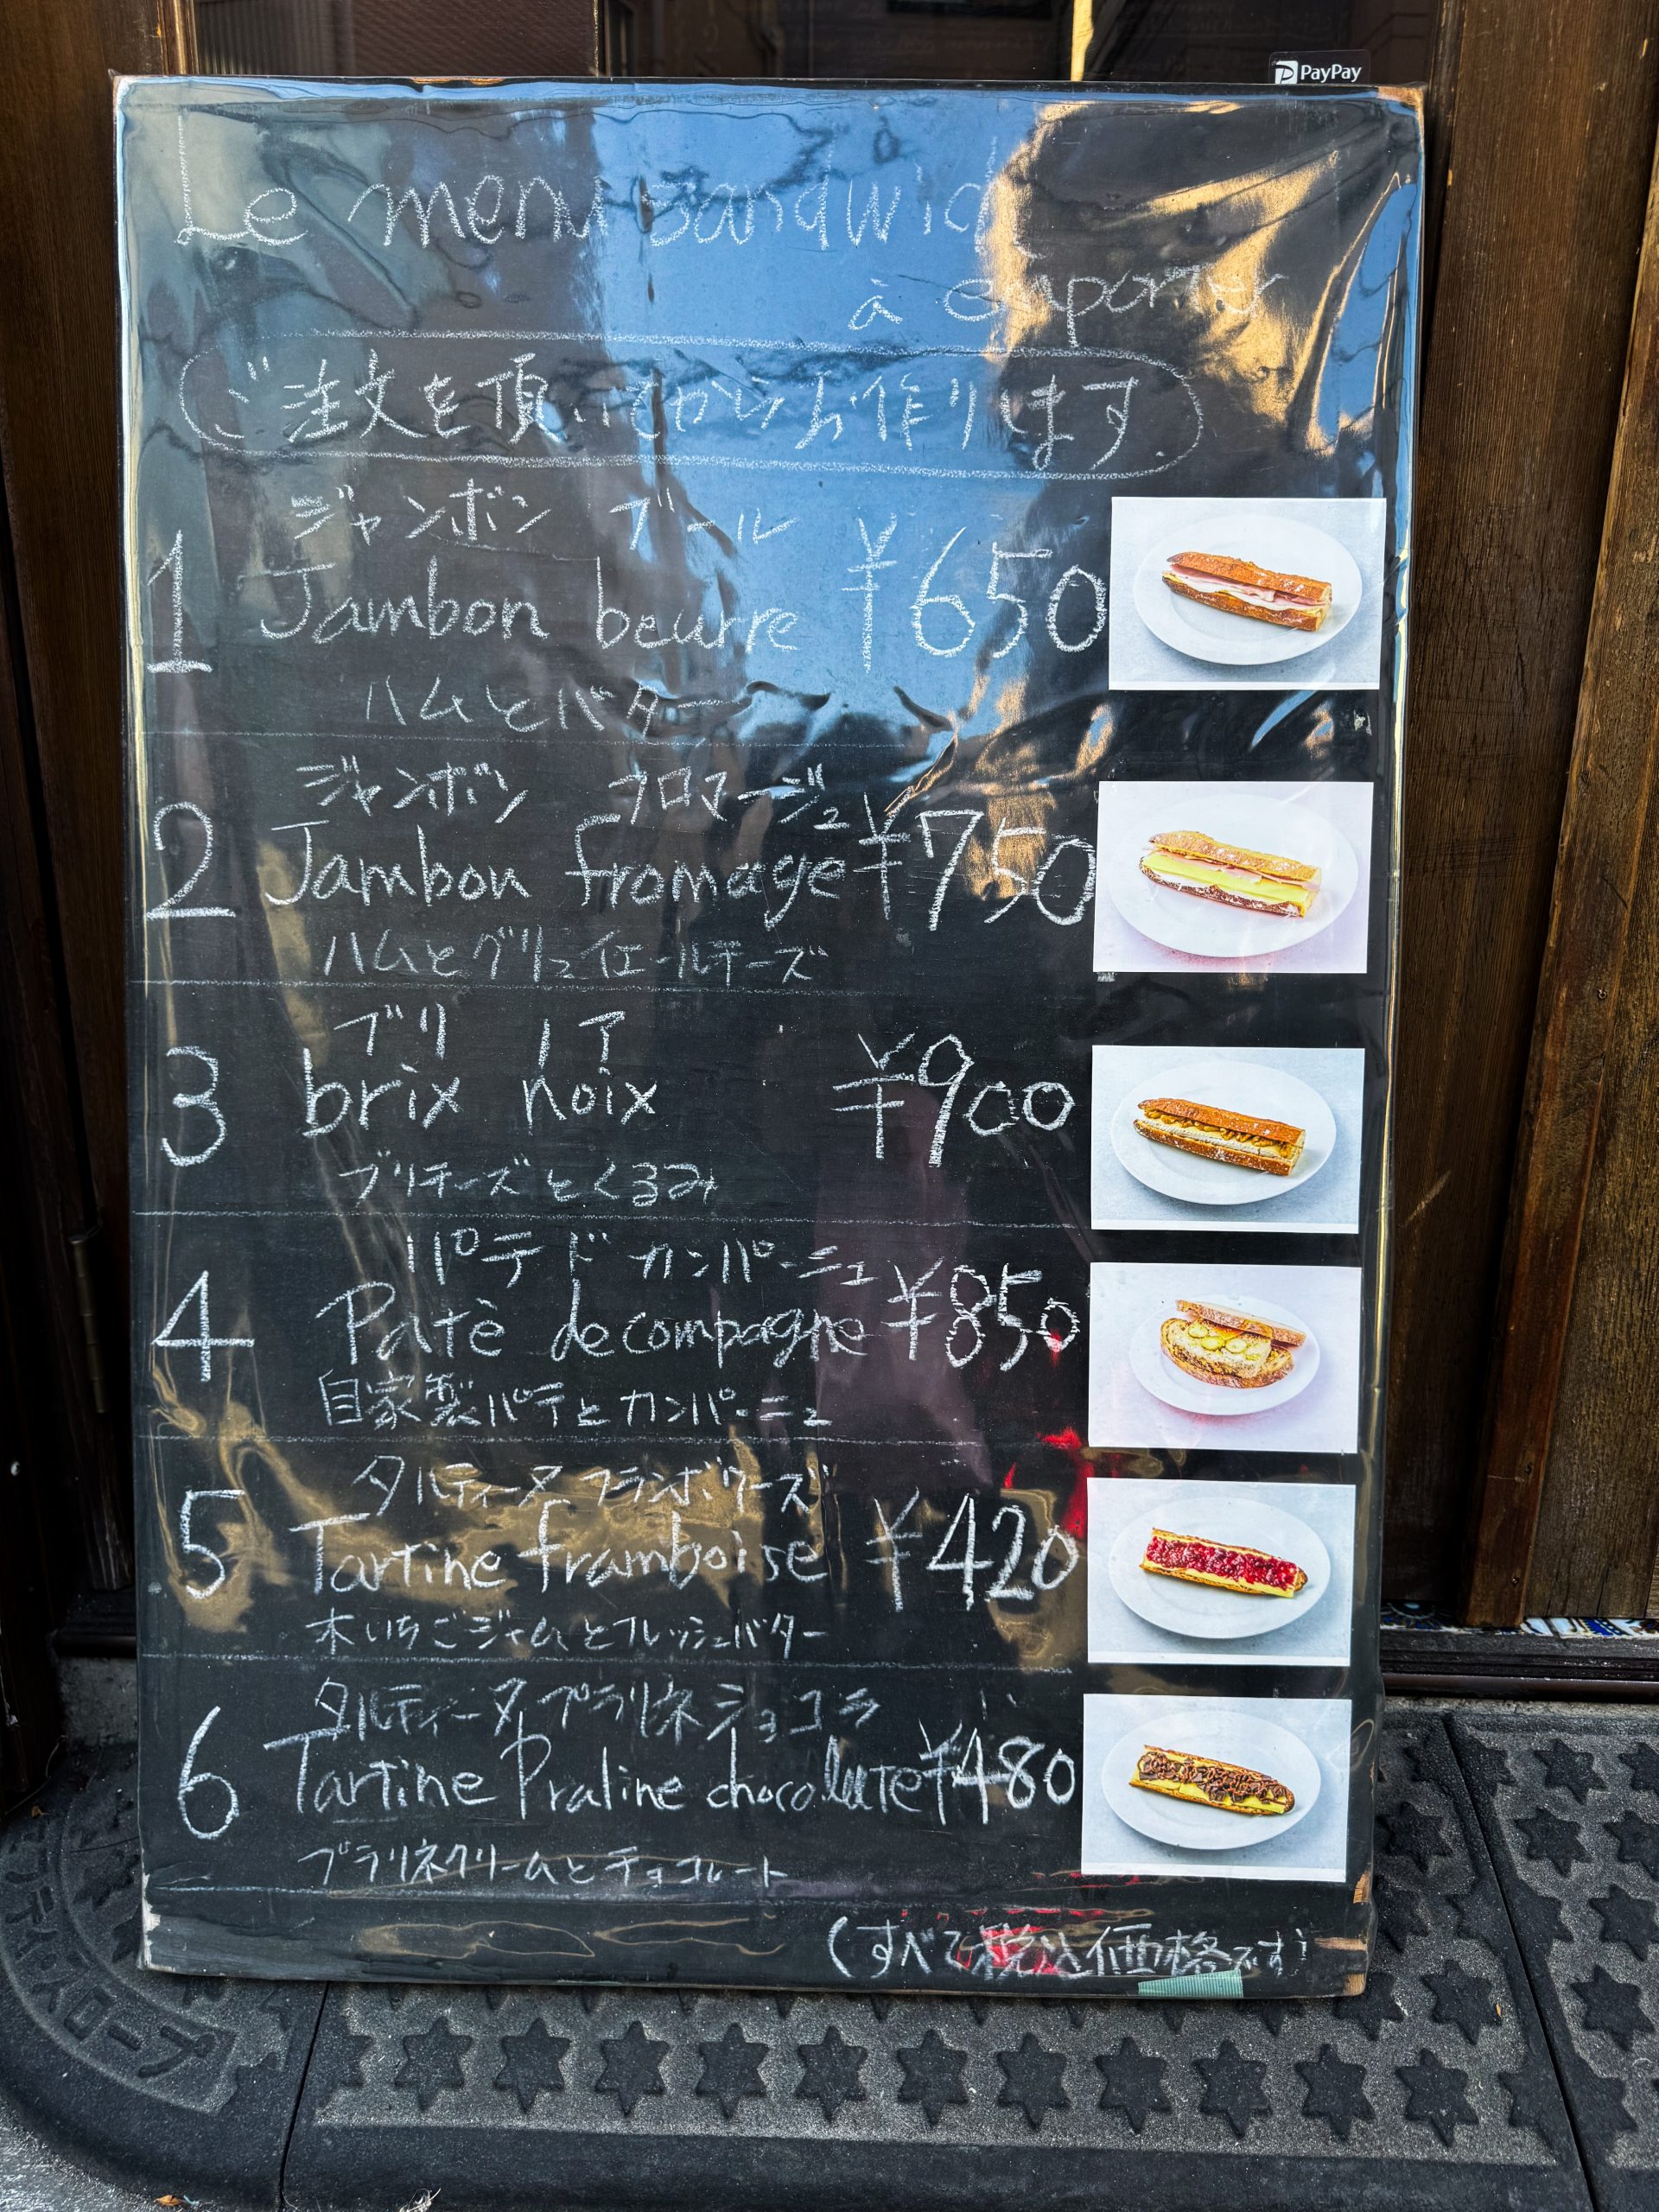 PayPay
Le menu sandwich
à emporter
ご注文を頂いてからお作ります
ジャンボン ブール
1 Jambon beurre ¥650
ハムとバター
ジャンボン フロマージュ
2 Jambon fromage ¥750
ハムとグリュイエールチーズ
ブリ ノア
3 brix noix ¥900
ブリチーズとくるみ
パテ ド カンパーニュ
4 Patè de compagne ¥850
自家製パテとカンパーニュ
タルティーヌ フランボワーズ
5 Tartine framboise ¥420
木いちごジャムとフレッシュバター
タルティーヌ プラリネ ショコラ
6 Tartine Praline chocolate ¥480
プラリネクリームとチョコレート
(すべて税込価格です)